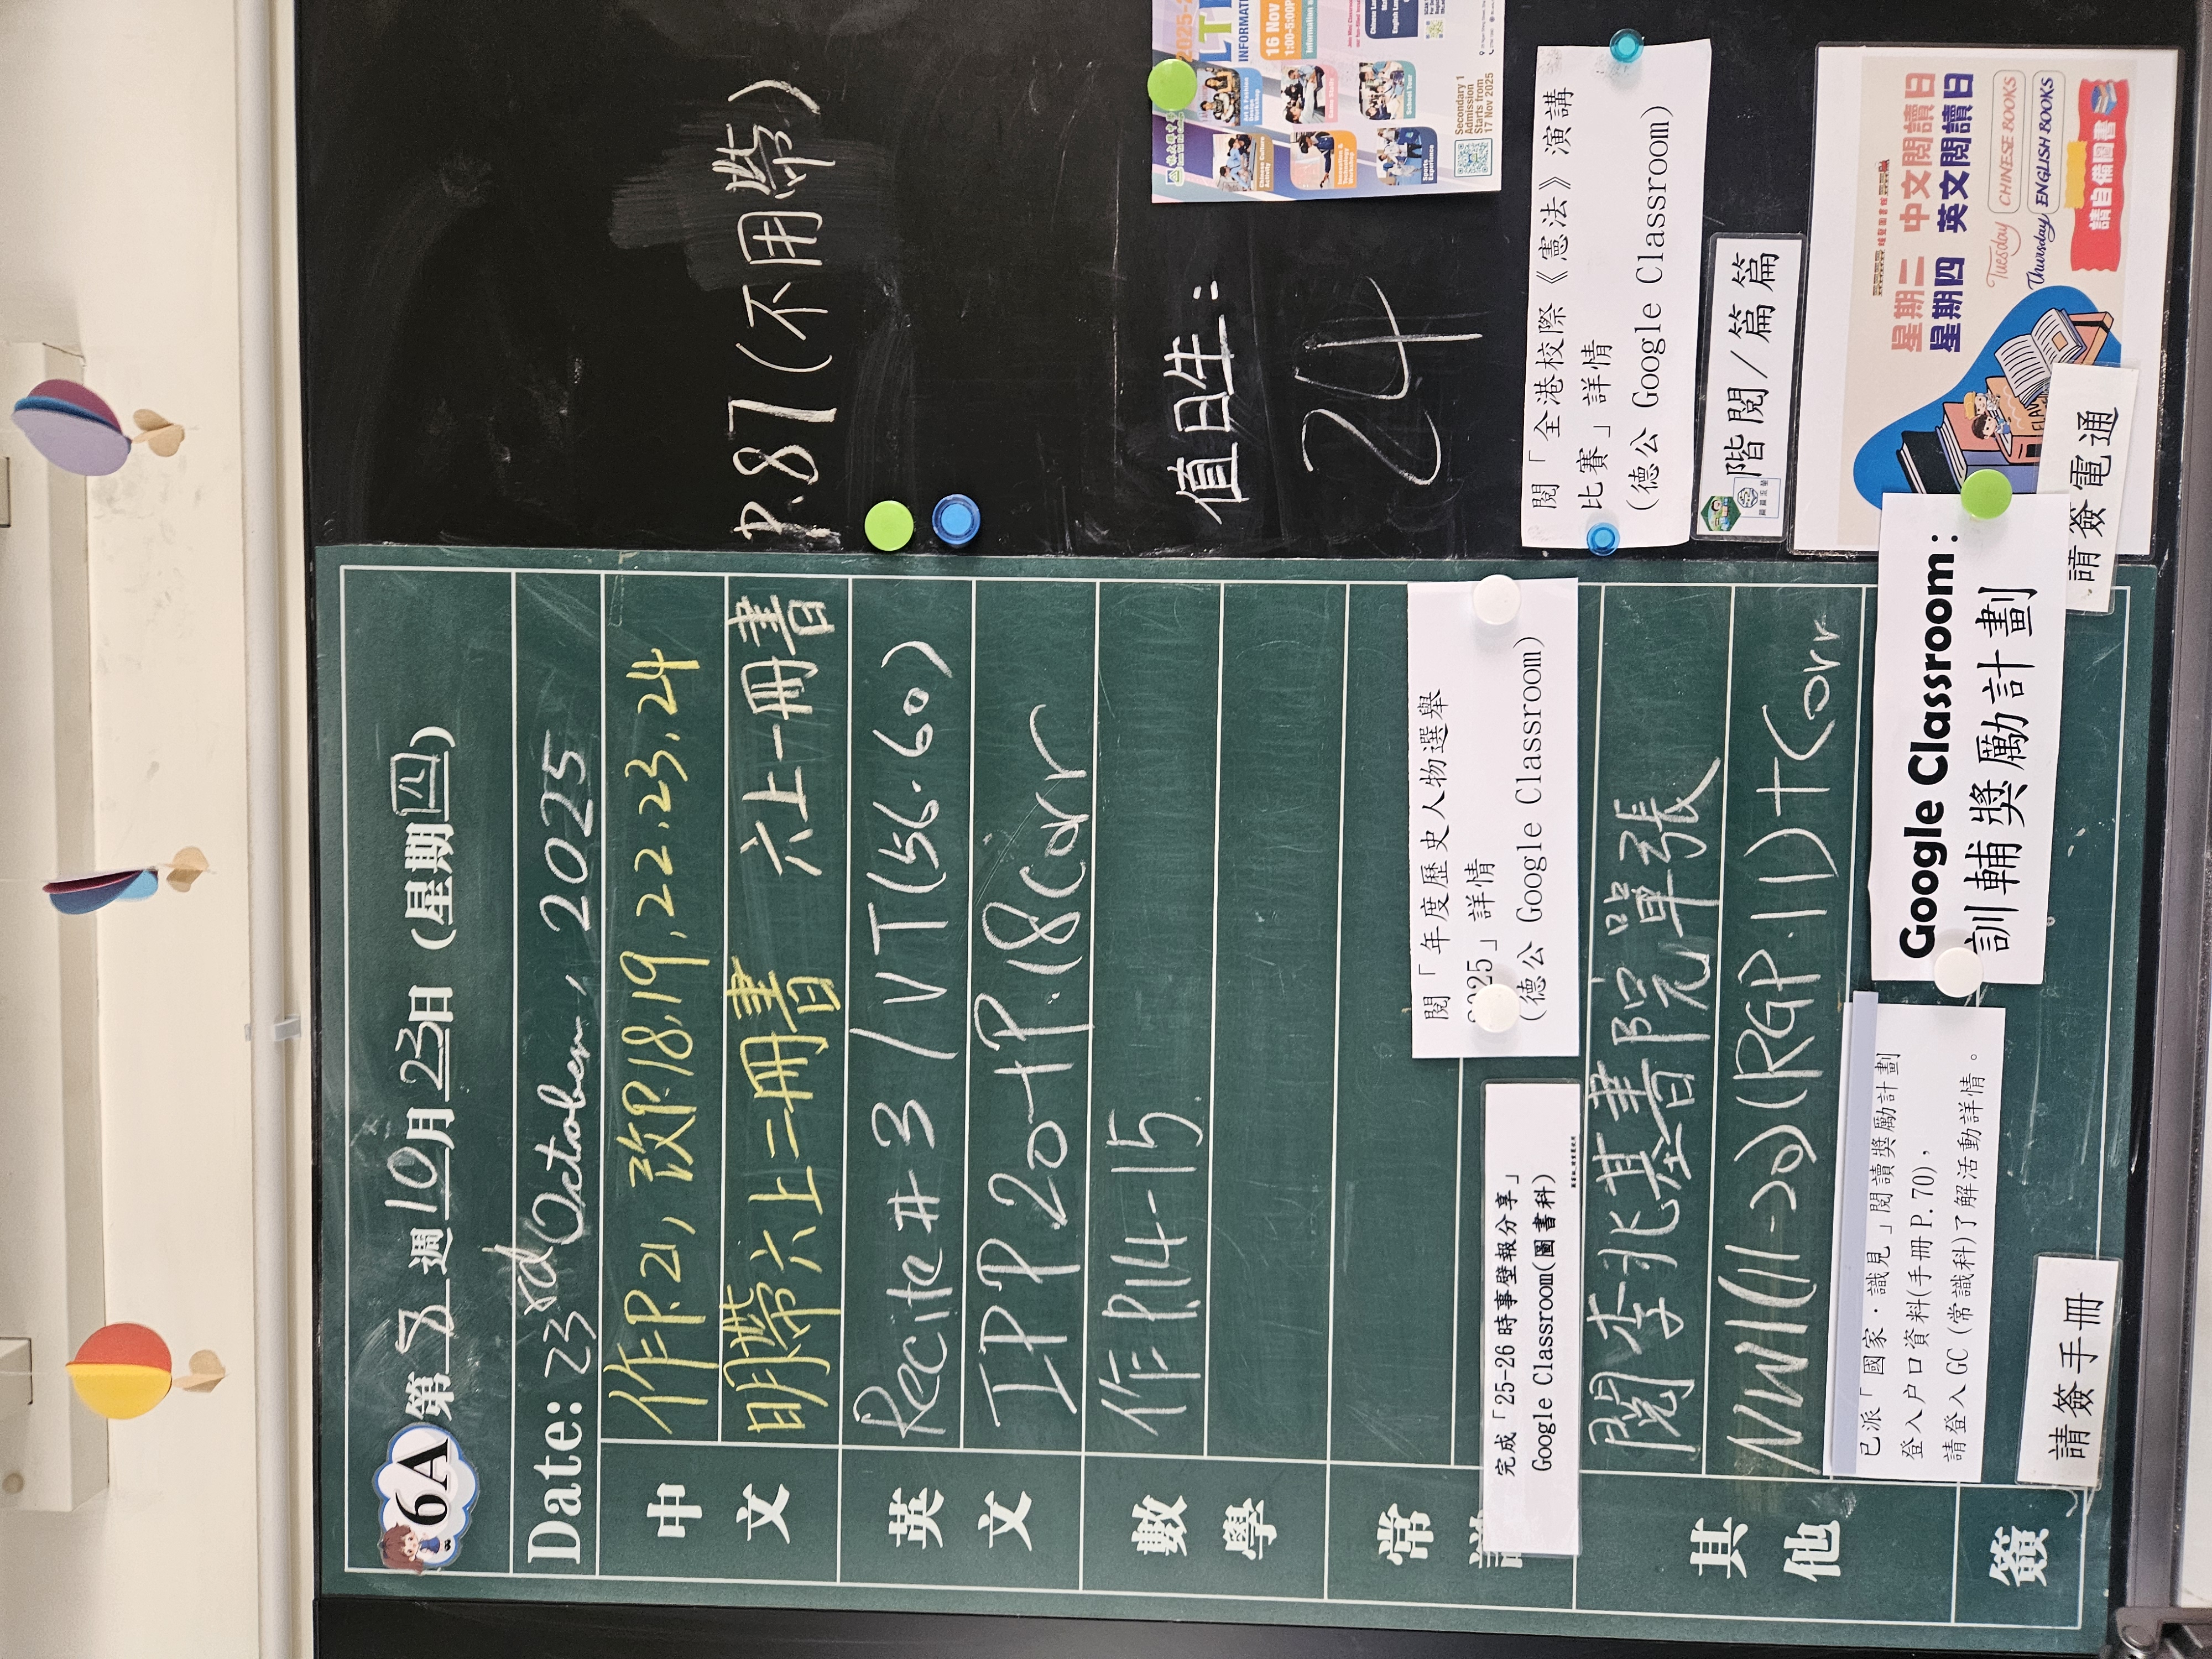 6A 第 8 週 10月 23日 (星期 四)
Date: 23rd October, 2025
中文
作P.21, 改P.18,19,22,23,24
明帶六上二冊書 六上一冊書 p.87(不用帶)
英文
Recite #3 / VT(56-60)
IPP.20+P.18Corr
數學
作P.14-15
常
完成「25-26 時事壁報分享」
Google Classroom(圖書科)
閱「年度歷史人物選舉
2025」詳情
(德公 Google Classroom)
其他
閱李兆基書院單張
NW1(11->20)(RGP.11)+Corr
已派「國家．識見」閱讀獎勵計劃
登入户口資料(手冊 P.70)，
請登入 GC (常識科)了解活動詳情。
Google Classroom:
訓輔獎勵計劃
簽
請簽手冊
請簽電通
值日生:
24
閱「全港校際《憲法》演講
比賽」詳情
(德公 Google Classroom)
階閱/篇篇
星期二 中文閱讀日
星期四 英文閱讀日
Tuesday CHINESE BOOKS
Thursday ENGLISH BOOKS
請自備圖書
INFORMATI
16 Nov
1:00-5:00P
Information
School Tour
Sports Experience
Secondary 1
Admission
Starts from
17 Nov 2025